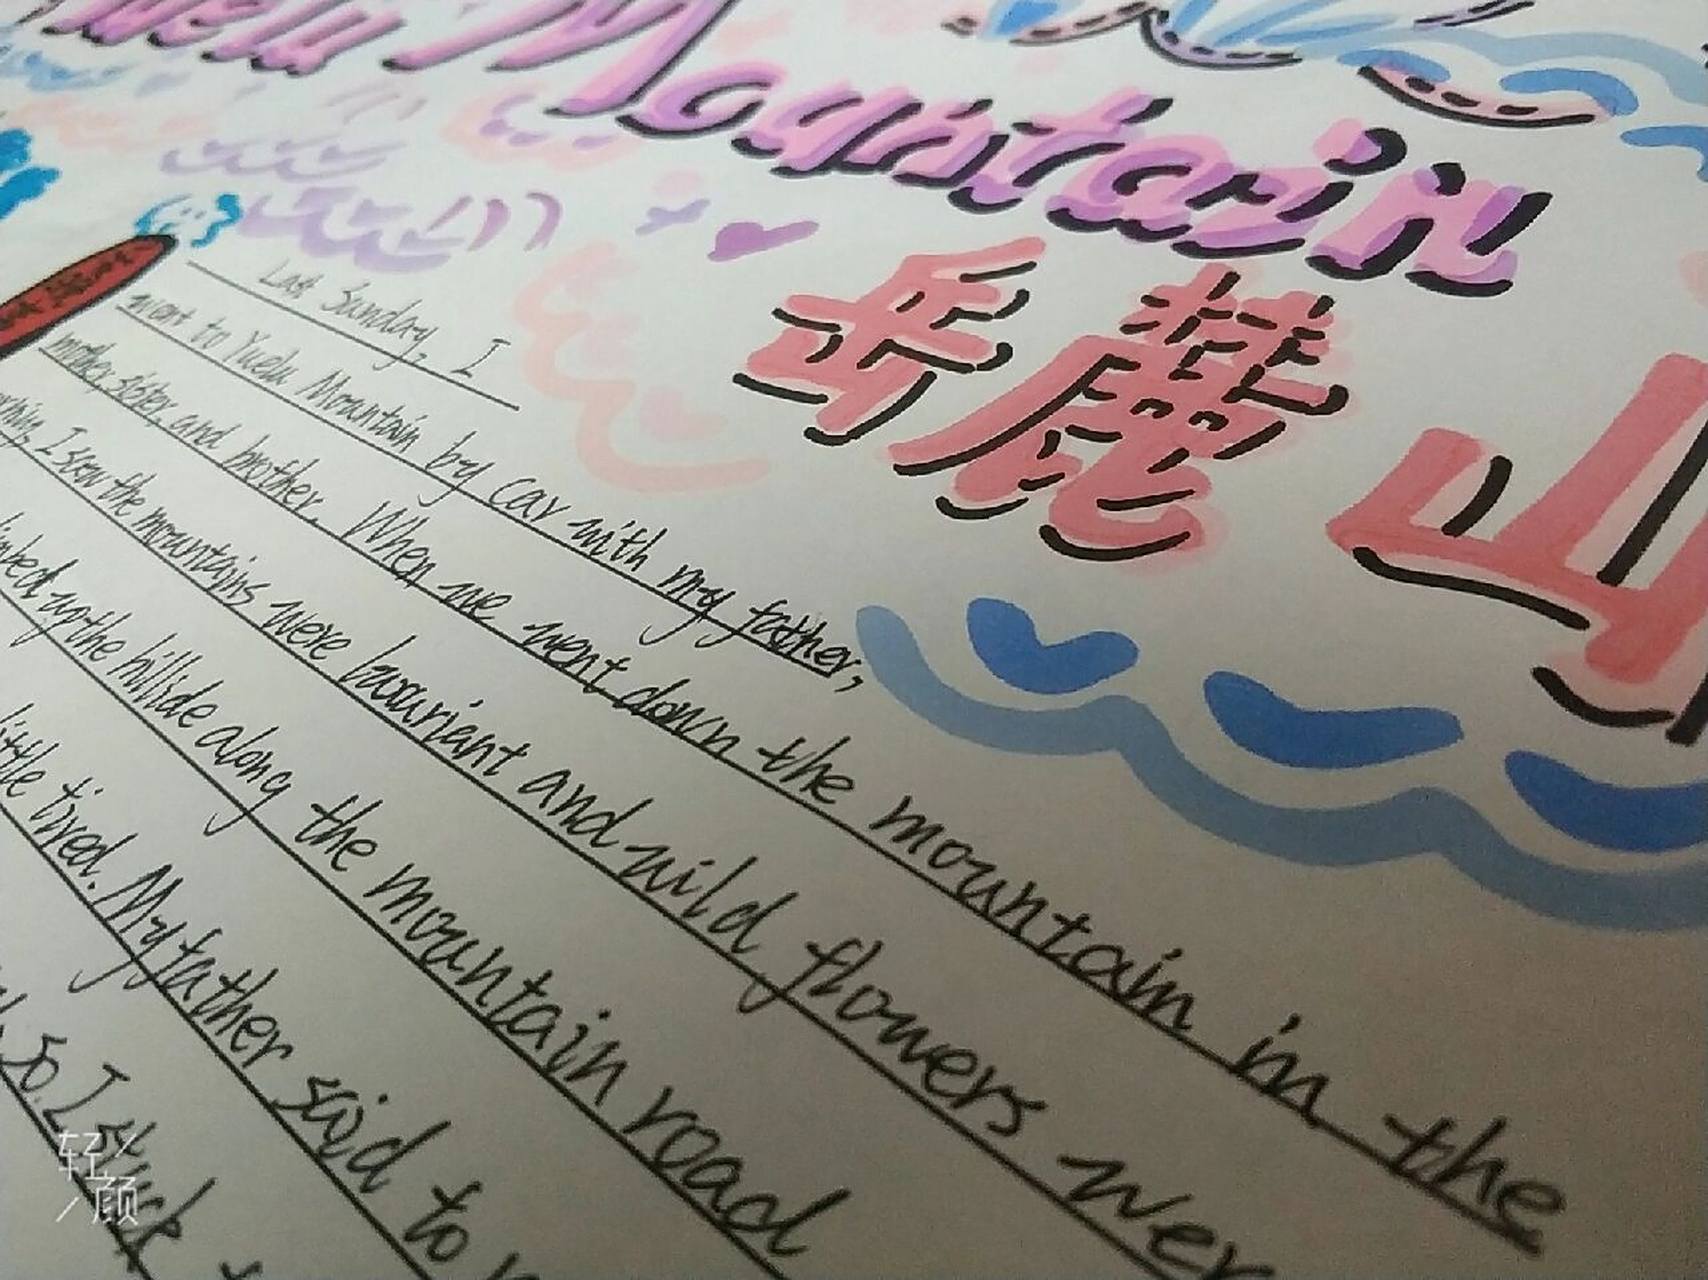 Yuelu Mountain
岳麓山
Last Sunday, I
went to Yuelu Mountain by car with my father,
mother, sister, and brother. When we went down the mountain in the
I saw the mountains were luxurient and wild flowers wer
up the hillside along the mountain road
little tired. My father said to
So. I stuck
轻颜